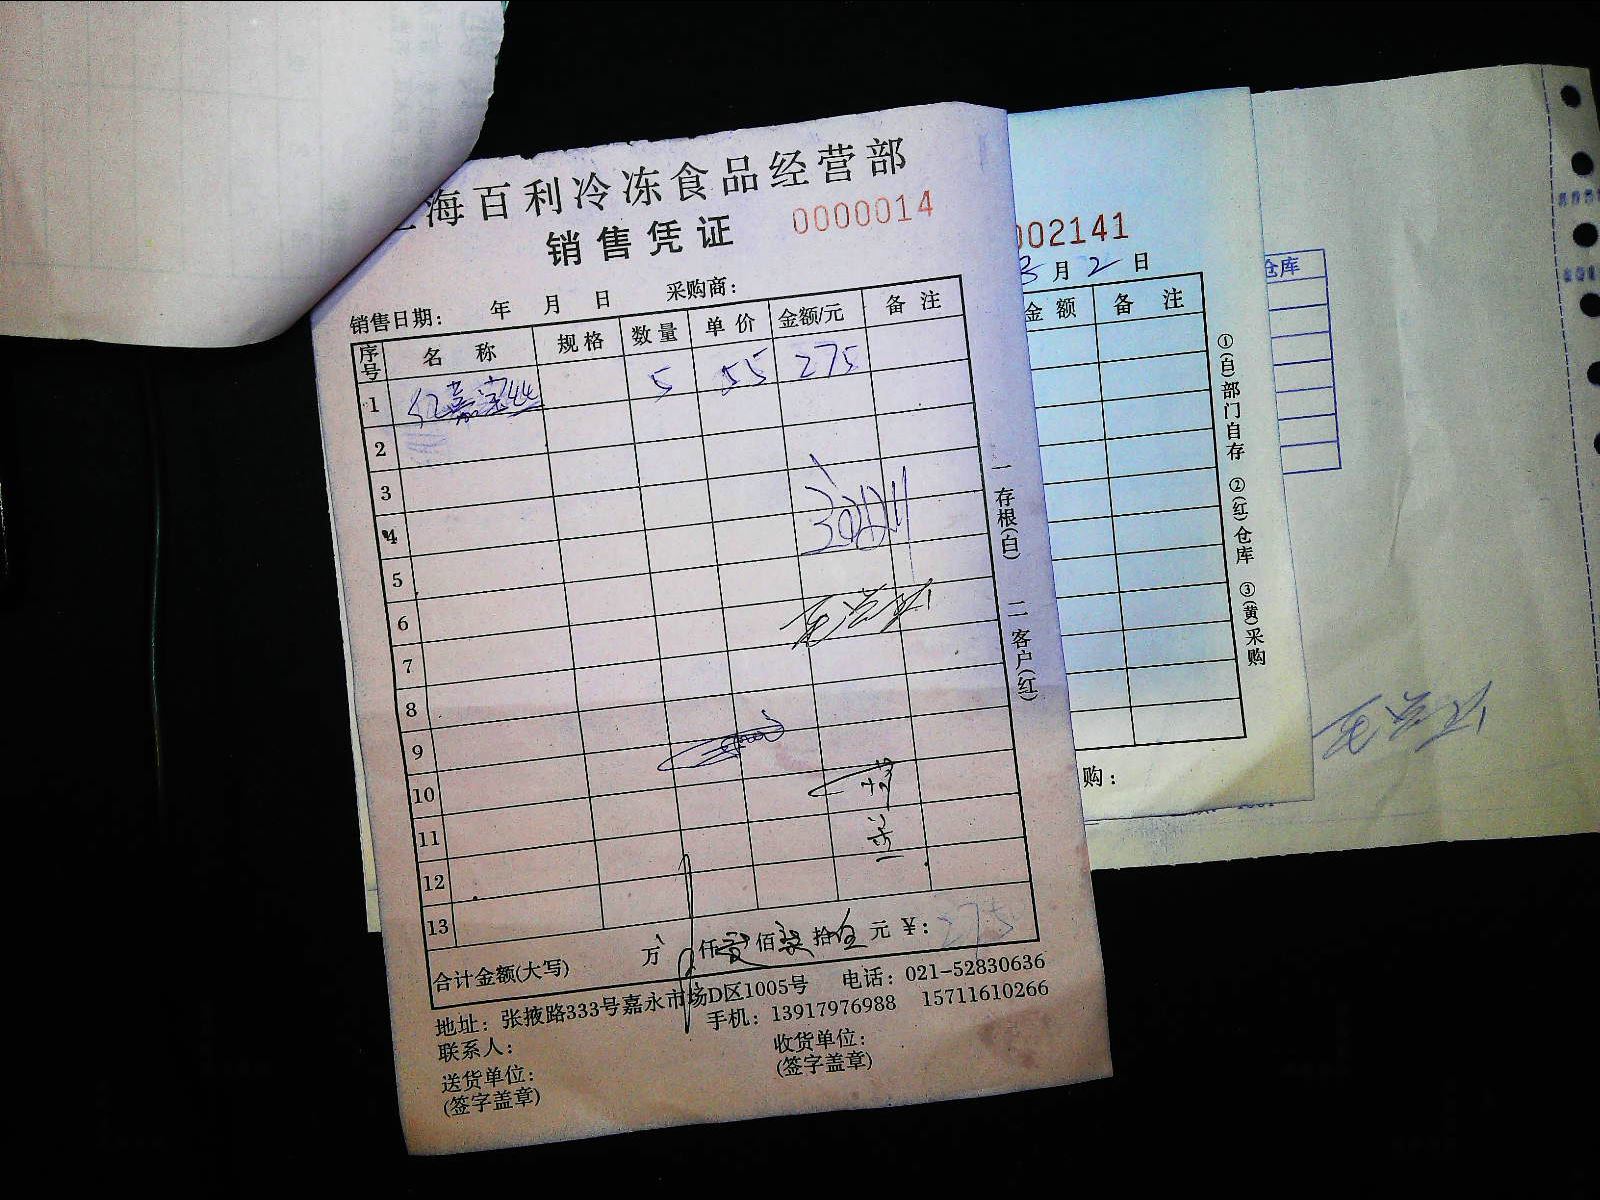 海百利冷冻食品经营部
销售凭证 0000014
销售日期： 年 月 日 采购商：
序号 名称 规格 数量 单价 金额/元 备注
1 5 55 275
2
3
4
5
6
7
8
9
10
11
12
13
合计金额(大写) 万 仟贰佰柒拾伍元 ¥：275
地址：张掖路333号嘉永市场D区1005号 电话：021-52830636
联系人： 手机：13917976988 15711610266
送货单位： 收货单位：
(签字盖章) (签字盖章)
一存根(白) 二客户(红)
002141
3月2日
金额 备注
①(白)部门自存 ②(红)仓库 ③(黄)采购
购：
仓库